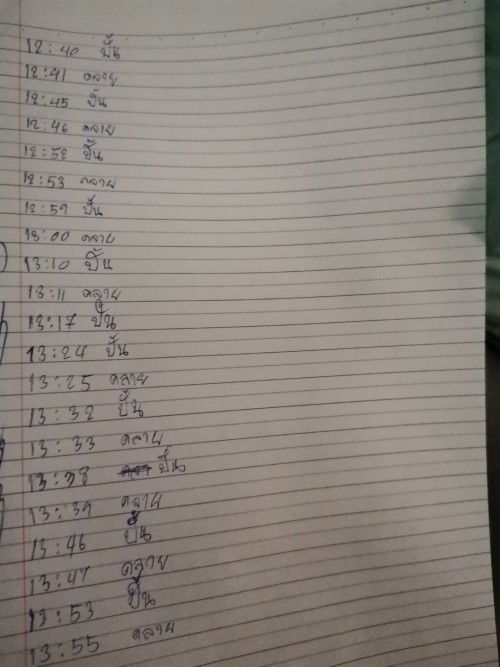 12:40 ปั้น
12:41 คลาย
12:45 ปั้น
12:46 คลาย
12:52 ปั้น
12:53 คลาย
12:59 ปั้น
13:00 คลาย
13:10 ปั้น
13:11 คลาย
13:17 ปั้น
13:24 ปั้น
13:25 คลาย
13:32 ปั้น
13:33 คลาย
13:38 ปั้น
13:39 คลาย
13:46 ปั้น
13:47 คลาย
13:53 ปั้น
13:55 คลาย